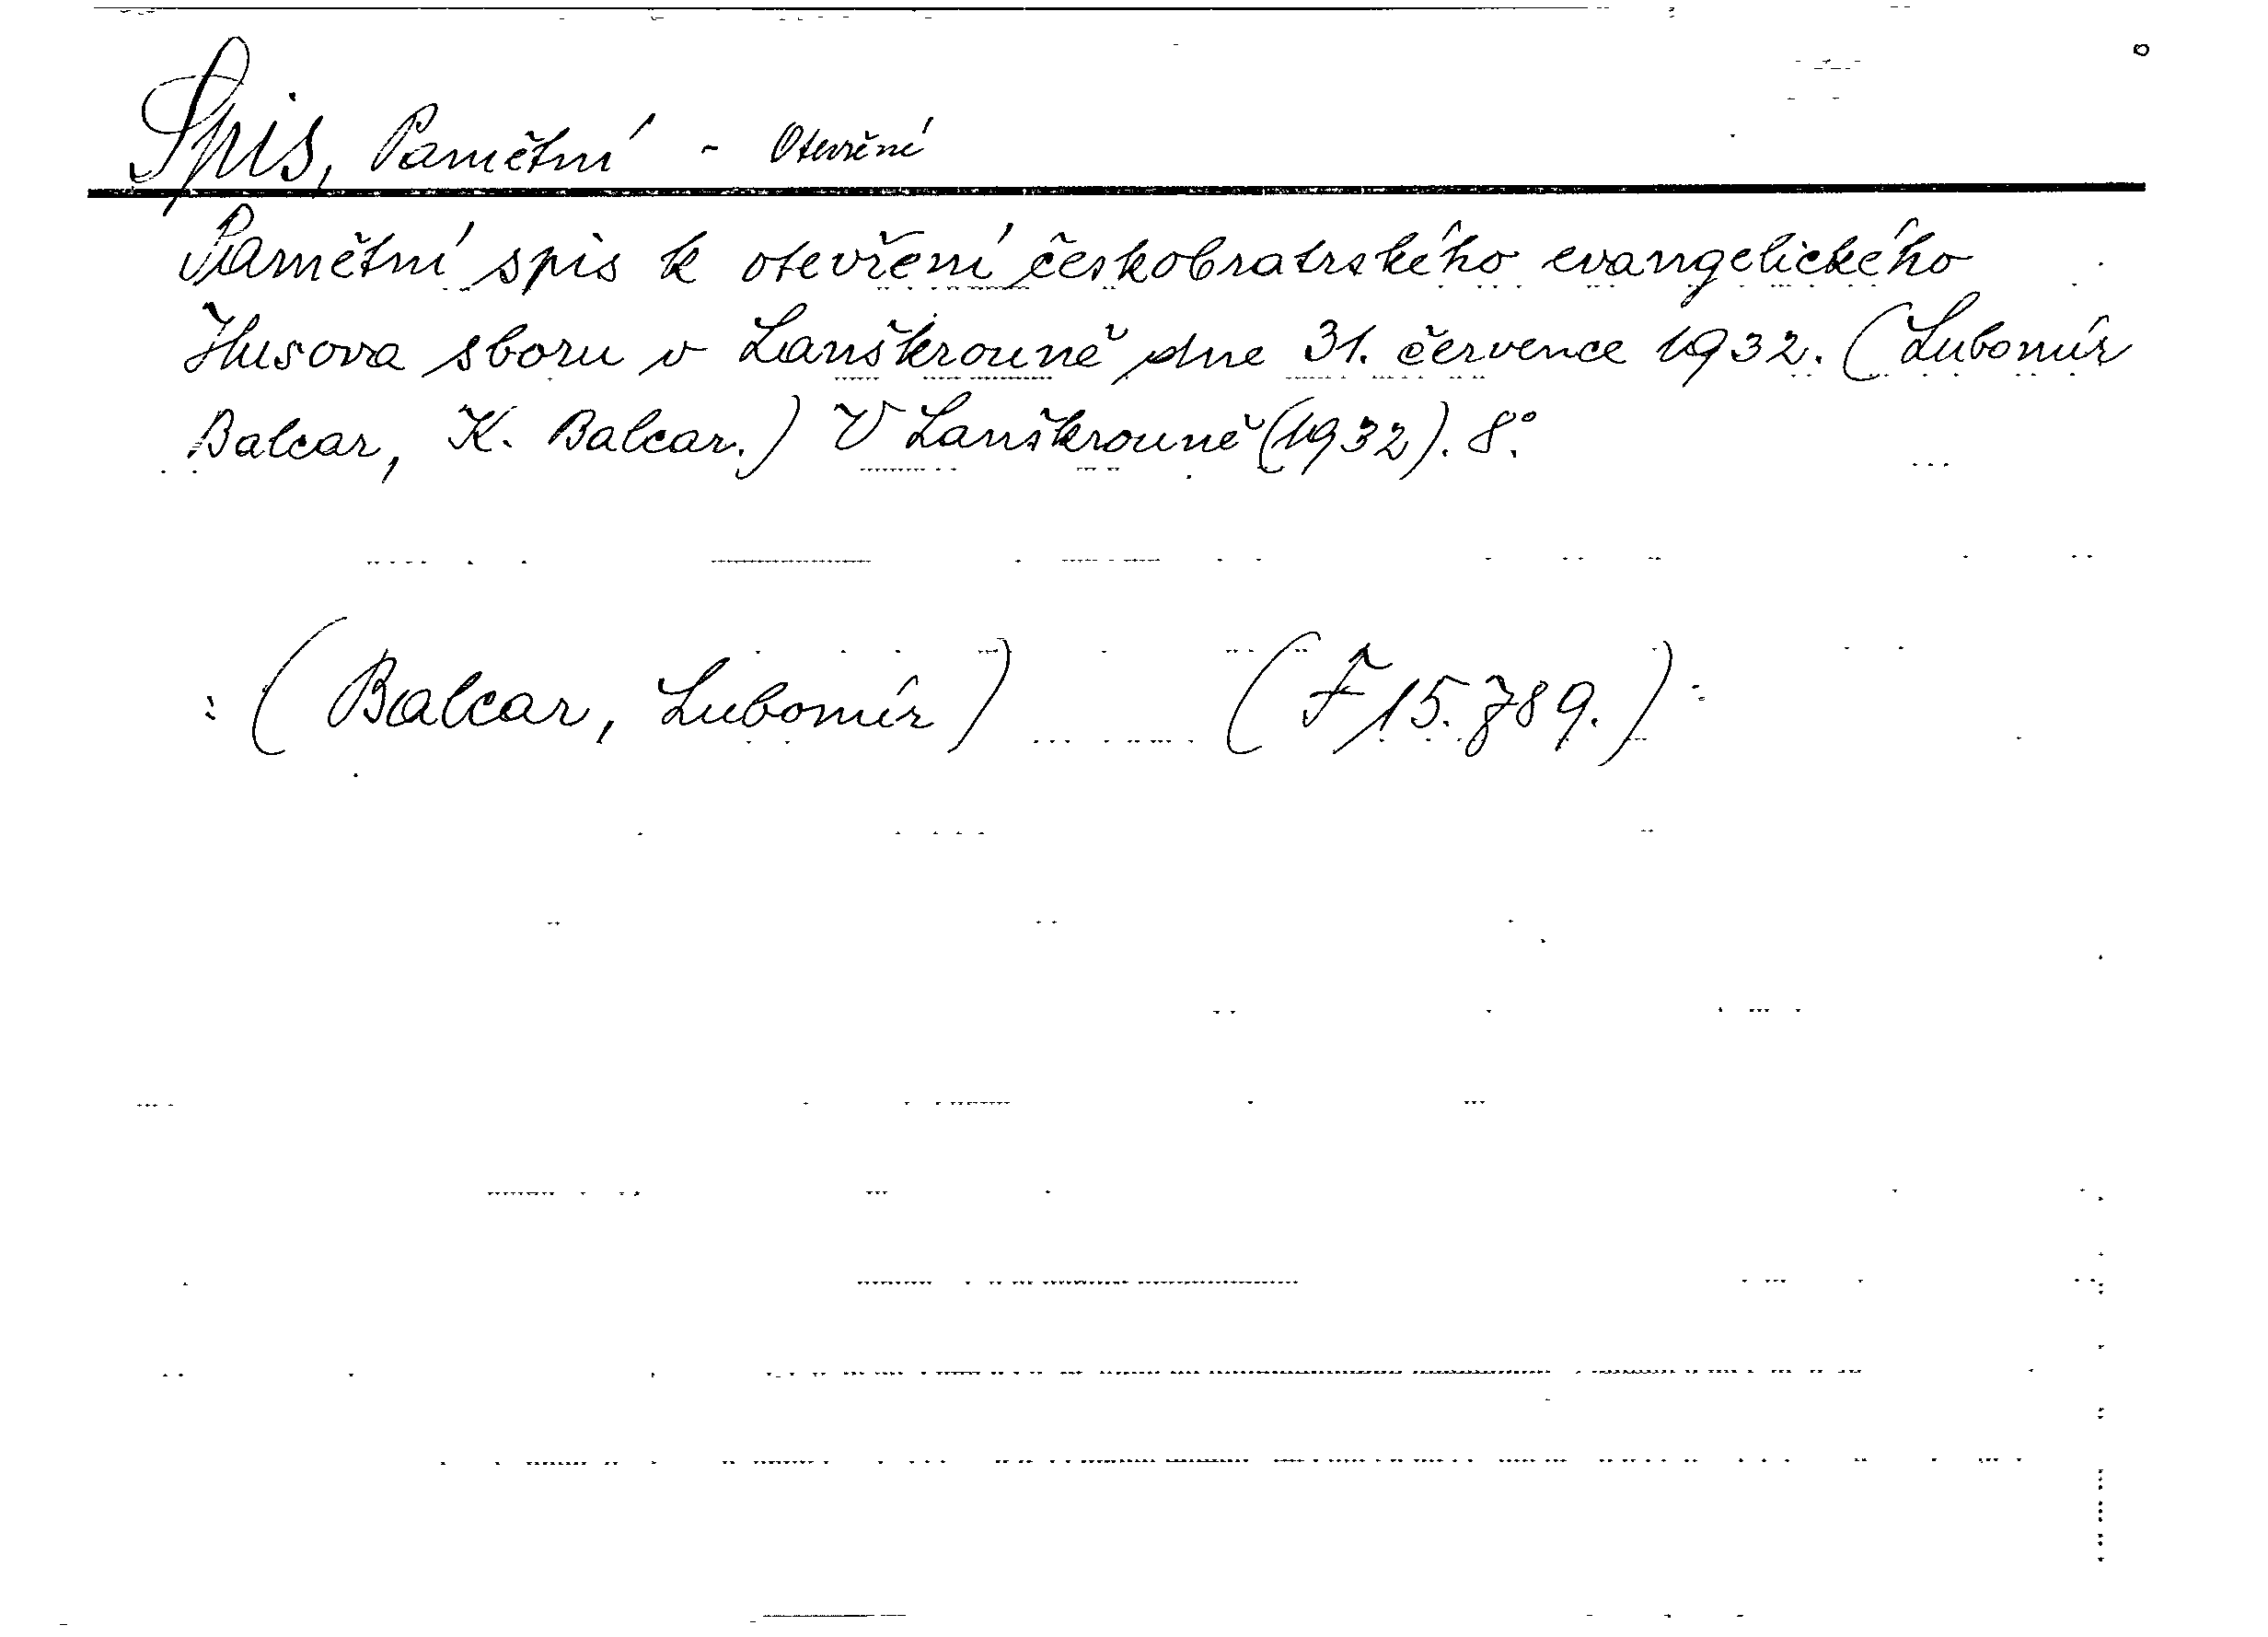 Spis, Pamětní - Otevření
Pamětní spis k otevření českobratrského evangelického
Husova sboru v Lanškrouně dne 31. července 1932. (Lubomír
Balcar, K. Balcar.) V Lanškrouně (1932). 8°.
(Balcar, Lubomír) (F 15.789.)